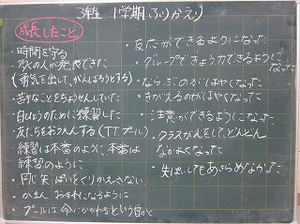 3年生 1学期 ふりかえり
成長したこと
・時間を守る
・多くの人が発表できた
(勇気を出して、がんばろうとする)
・苦手なことをちょうせんしていた
・目ひょうのために練習した
・友だちをおうえんする(T.T.プール)
・練習は本番のように、本番は
練習のように
・同じ失ぱいをくりかえさない
・がまん
・プールは命にかかわるという自かく
・反応ができるようになった
・グループできょう力できるように
なった
・ならぶのがはやくなった
・きがえるのがはやくなった
・注意ができるようになった
・クラスがえをして、どんどん
なかよくなった
・失ぱいしてもあきらめなかった